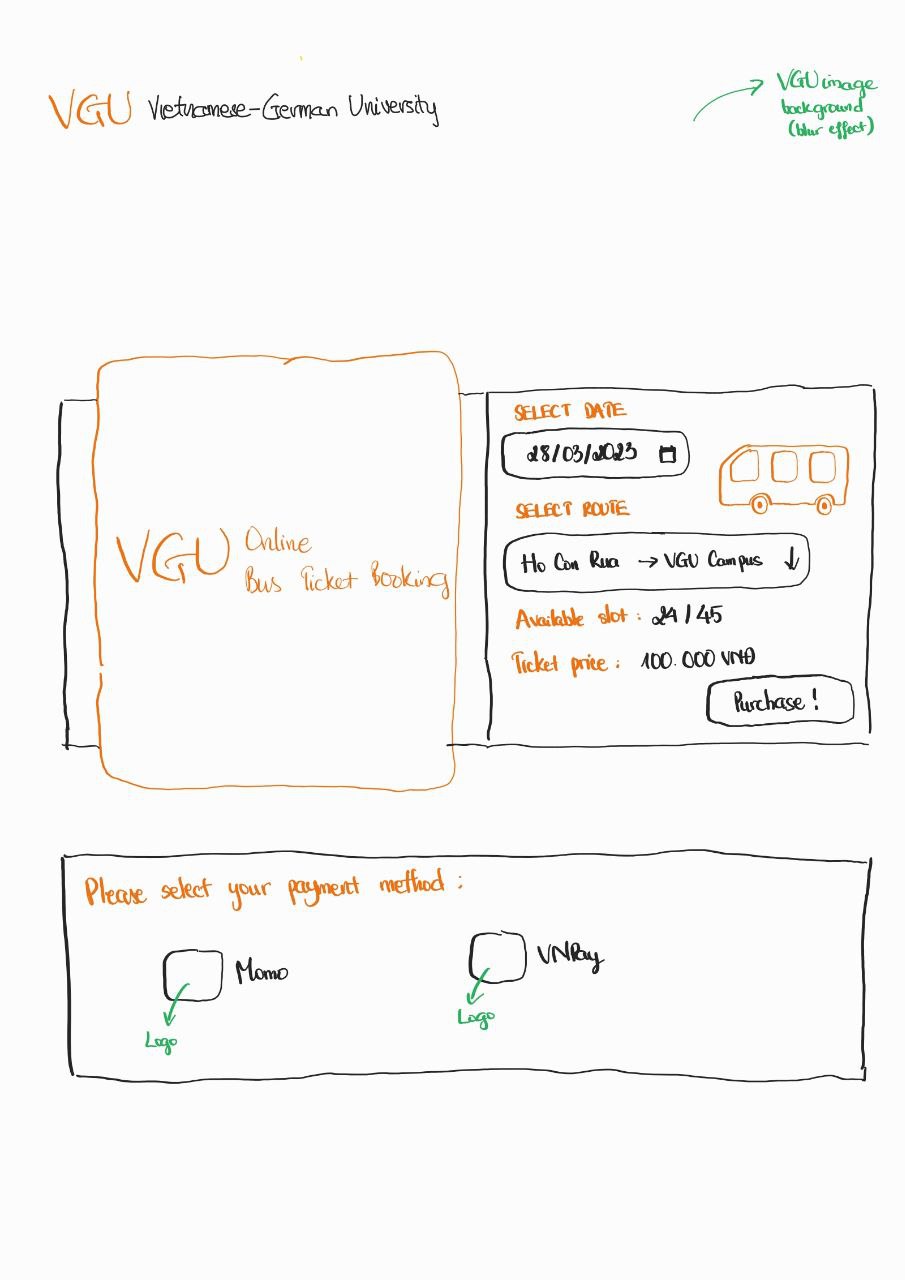 VGU Vietnamese-German University
VGU image
background
(blur effect)
VGU Online
Bus Ticket Booking
SELECT DATE
28/03/2023
SELECT ROUTE
Ho Con Rua → VGU Campus ↓
Available slot : 24/45
Ticket price : 100.000 VNĐ
Purchase !
Please select your payment method :
Momo
VNPay
Logo
Logo